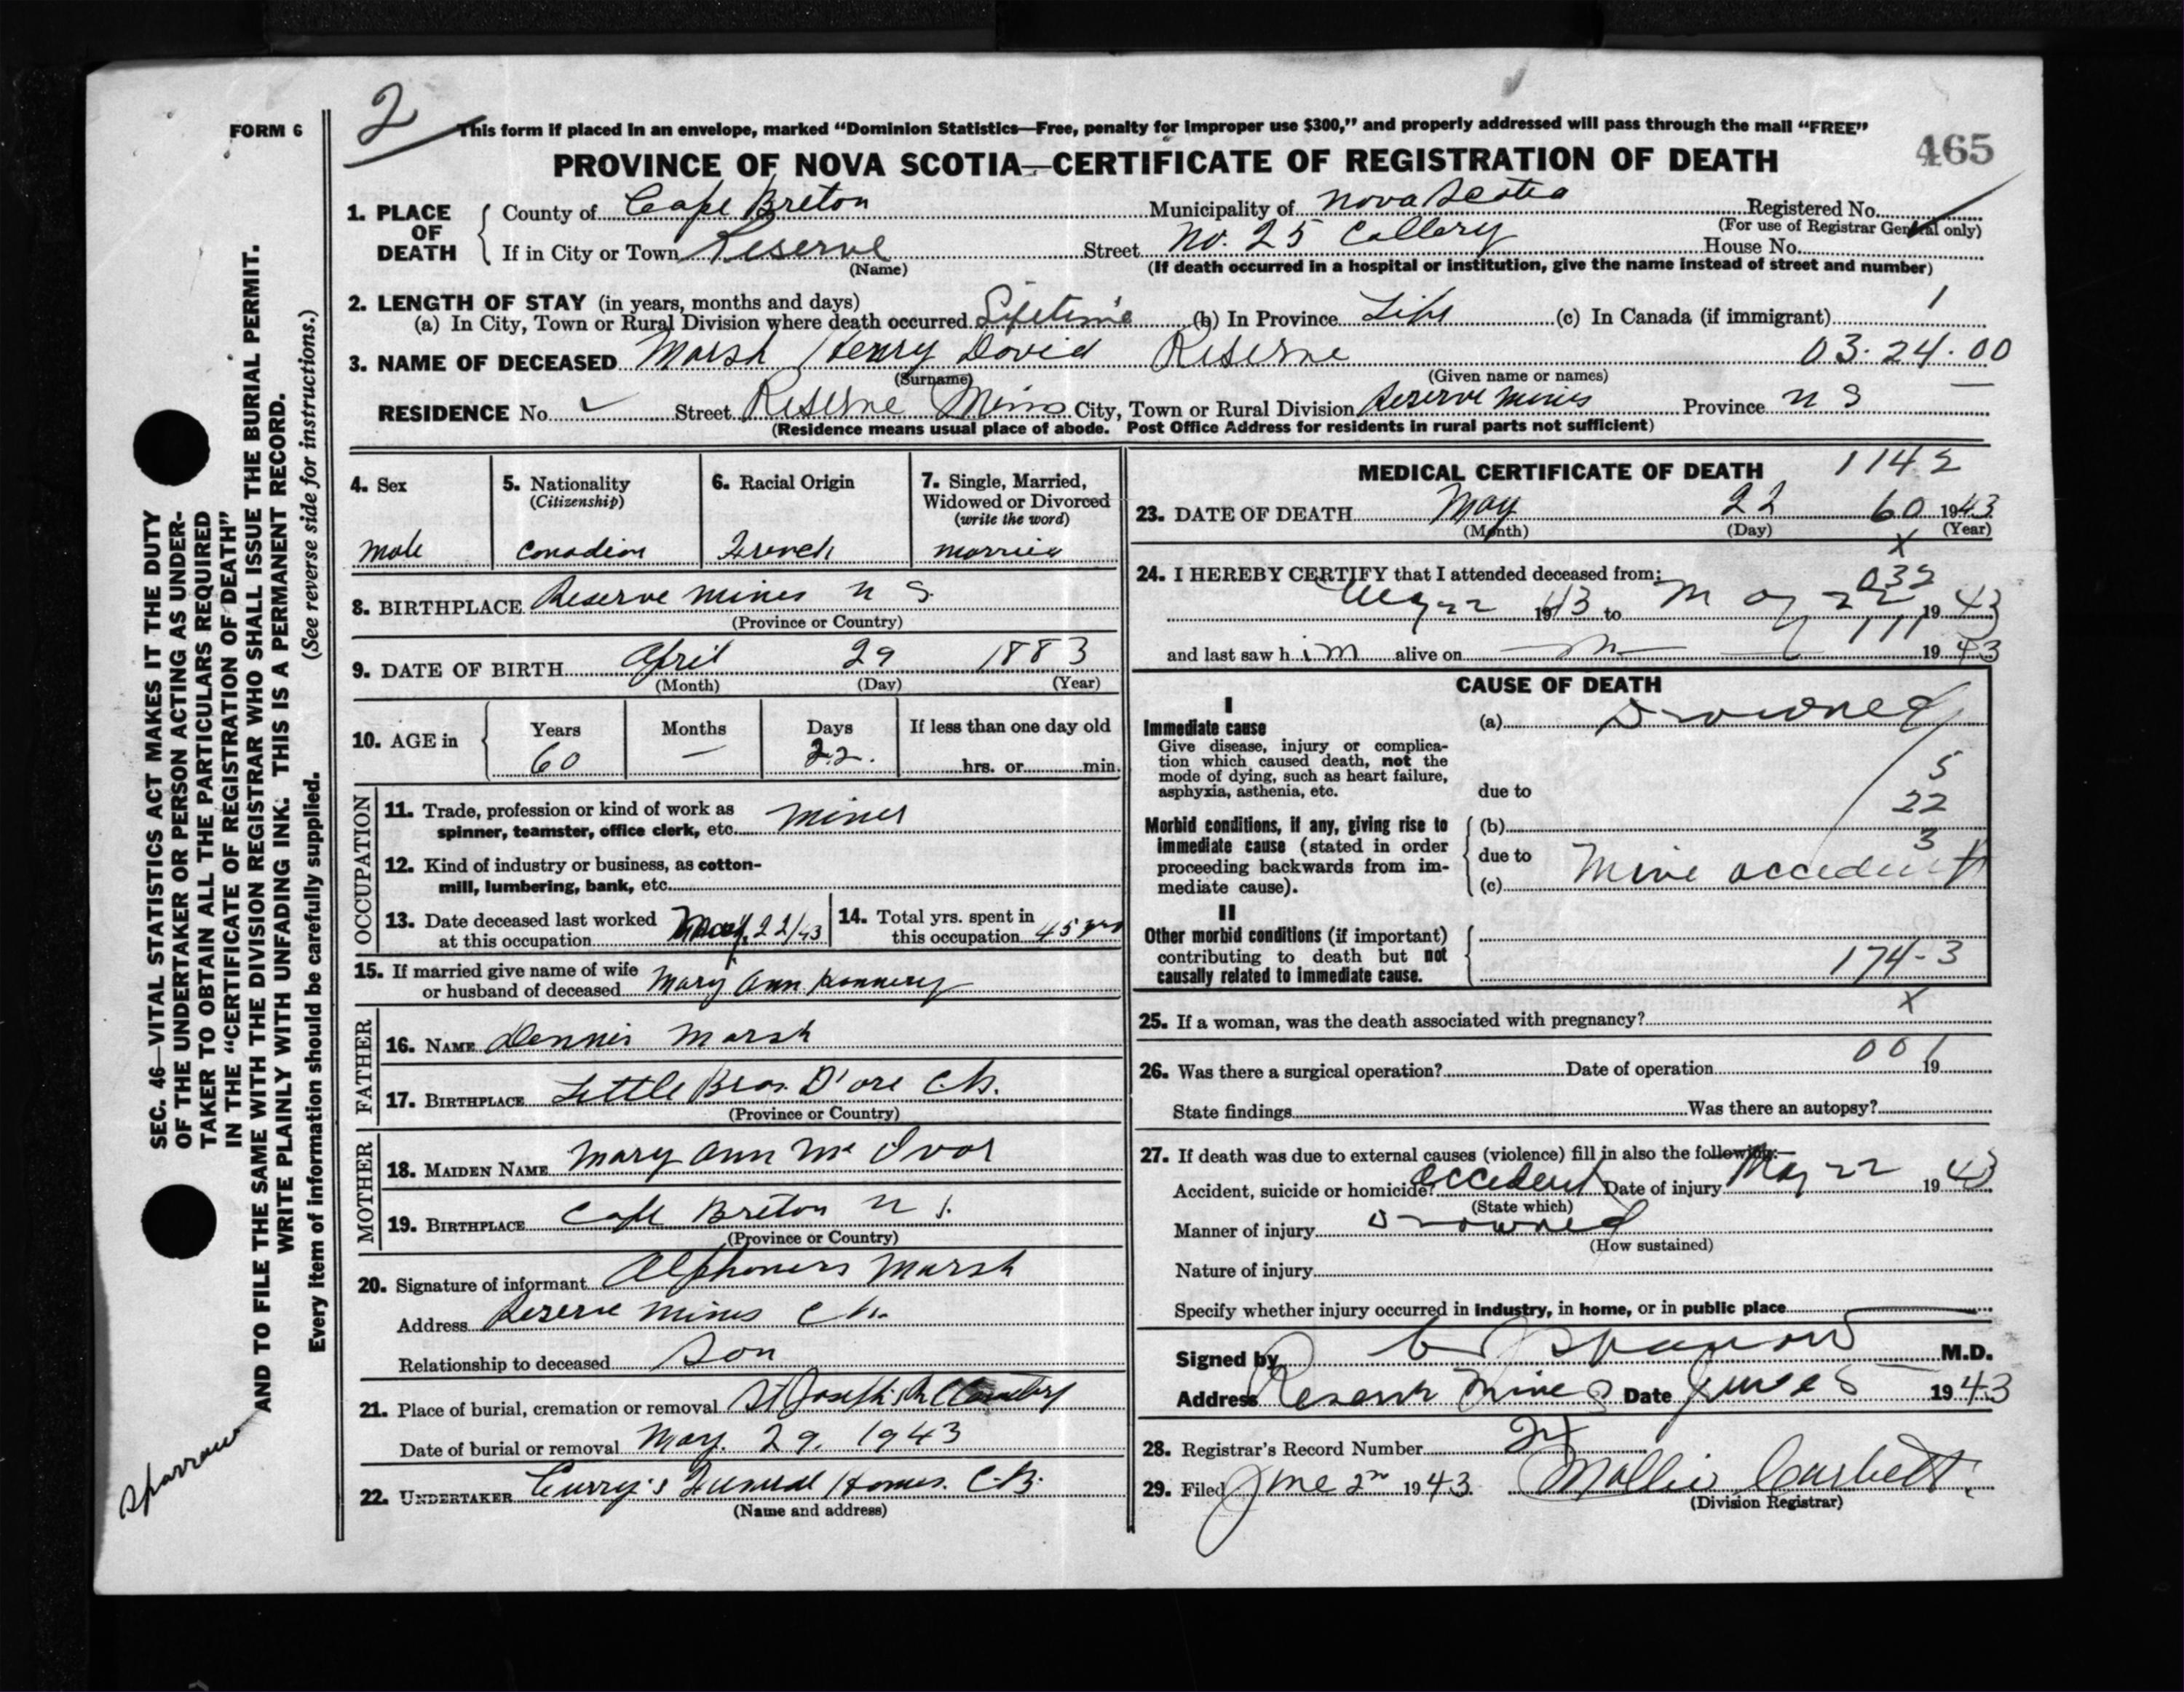 2
FORM 6
This form if placed in an envelope, marked "Dominion Statistics—Free, penalty for improper use $300," and properly addressed will pass through the mail "FREE"
PROVINCE OF NOVA SCOTIA—CERTIFICATE OF REGISTRATION OF DEATH
465
1. PLACE OF DEATH
County of Cape Breton Municipality of Nova Scotia Registered No.
(For use of Registrar General only)
If in City or Town Reserve Street No. 25 Collery House No.
(Name)
(If death occurred in a hospital or institution, give the name instead of street and number)
2. LENGTH OF STAY (in years, months and days)
(a) In City, Town or Rural Division where death occurred Lifetime (b) In Province Life (c) In Canada (if immigrant) 1
3. NAME OF DECEASED Marsh Henry David Reserve 03·24·00
(Surname) (Given name or names)
RESIDENCE No. Street Reserve Mines City, Town or Rural Division Reserve Mines Province N S
(Residence means usual place of abode. Post Office Address for residents in rural parts not sufficient)
4. Sex
Male
5. Nationality
(Citizenship)
Canadian
6. Racial Origin
French
7. Single, Married,
Widowed or Divorced
(write the word)
Married
8. BIRTHPLACE Reserve Mines N S.
(Province or Country)
9. DATE OF BIRTH April 29 1883
(Month) (Day) (Year)
10. AGE in
Years Months Days If less than one day old
60 — 22. hrs. or min.
OCCUPATION
11. Trade, profession or kind of work as
spinner, teamster, office clerk, etc. Miner
12. Kind of industry or business, as cotton-
mill, lumbering, bank, etc.
13. Date deceased last worked
at this occupation May 22/43
14. Total yrs. spent in
this occupation 45 yrs
15. If married give name of wife
or husband of deceased Mary Ann
FATHER
16. NAME Dennis Marsh
17. BIRTHPLACE Little Bras D'ore C.B.
(Province or Country)
MOTHER
18. MAIDEN NAME Mary Ann Mc Ivor
19. BIRTHPLACE Cape Breton N S.
(Province or Country)
20. Signature of informant Marsh
Address Reserve Mines C B.
Relationship to deceased Son
21. Place of burial, cremation or removal St Joseph's Cemetery
Date of burial or removal May. 29. 1943
22. UNDERTAKER Curry's Funeral Homes. C.B.
(Name and address)
MEDICAL CERTIFICATE OF DEATH 1142
23. DATE OF DEATH May 22 60 1943
(Month) (Day) (Year)
X
24. I HEREBY CERTIFY that I attended deceased from:
032
May 22 1943 to May 22 1943
111
and last saw h im alive on 1943
CAUSE OF DEATH
I
Immediate cause
Give disease, injury or complica-
tion which caused death, not the
mode of dying, such as heart failure,
asphyxia, asthenia, etc.
(a) Drowned
5
due to
22
Morbid conditions, if any, giving rise to
immediate cause (stated in order
proceeding backwards from im-
mediate cause).
(b)
3
due to
(c) Mine accident
II
Other morbid conditions (if important)
contributing to death but not
causally related to immediate cause.
174-3
X
25. If a woman, was the death associated with pregnancy?
001
26. Was there a surgical operation? Date of operation 19
State findings Was there an autopsy?
27. If death was due to external causes (violence) fill in also the following:
Accident, suicide or homicide? Accident Date of injury May 22 1943
(State which)
Manner of injury Drowned
(How sustained)
Nature of injury
Specify whether injury occurred in industry, in home, or in public place
Signed by Sparrow M.D.
Address Reserve Mines Date June 5 1943
28. Registrar's Record Number 24
29. Filed June 2nd 1943. Mollie Corbett.
(Division Registrar)
SEC. 46—VITAL STATISTICS ACT MAKES IT THE DUTY
OF THE UNDERTAKER OR PERSON ACTING AS UNDER-
TAKER TO OBTAIN ALL THE PARTICULARS REQUIRED
IN THE "CERTIFICATE OF REGISTRATION OF DEATH"
AND TO FILE THE SAME WITH THE DIVISION REGISTRAR WHO SHALL ISSUE THE BURIAL PERMIT.
WRITE PLAINLY WITH UNFADING INK. THIS IS A PERMANENT RECORD.
(See reverse side for instructions.)
Every item of information should be carefully supplied.
Sparrow